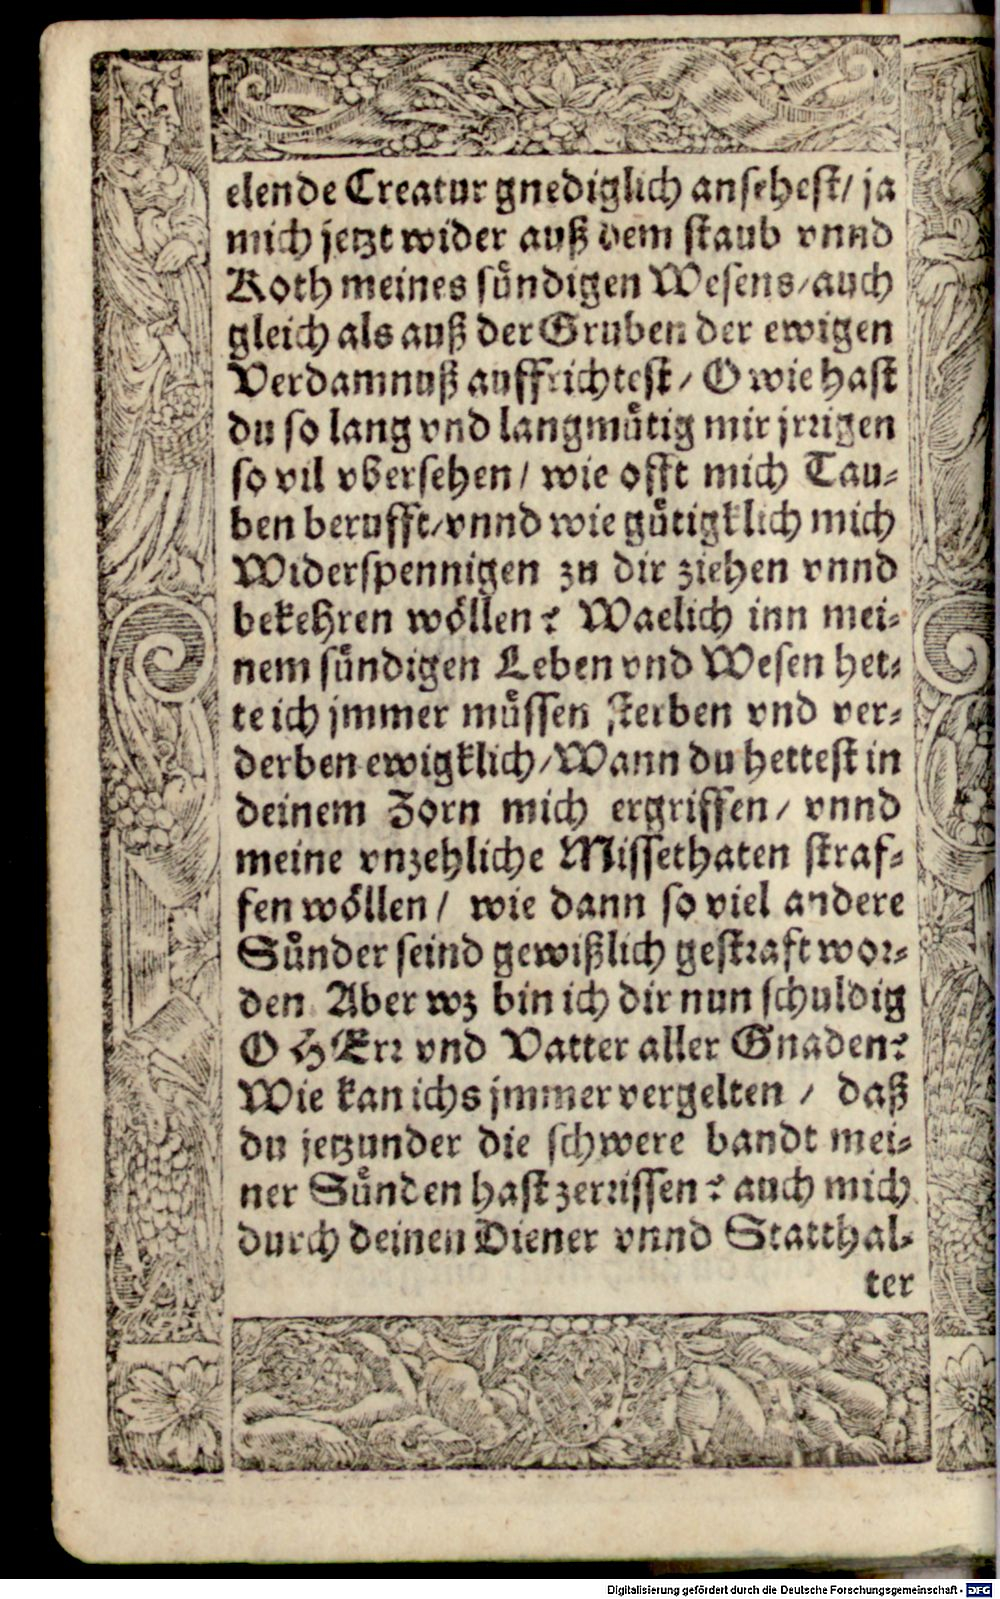 elende Creatur gnediglich ansehest/ ja
mich jetzt wider auß dem staub vnnd
Koth meines sündigen Wesens/auch
gleich als auß der Gruben der ewigen
Verdamnuß auffrichtest/ O wie hast
du so lang vnd langmütig mir jrrigen
so vil vbersehen/ wie offt mich Tau-
ben berufft/vnnd wie gütigklich mich
Widerspennigen zu dir ziehen vnnd
bekehren wöllen? Waelich inn mei-
nem sündigen Leben vnd Wesen het-
te ich jmmer müssen sterben vnd ver-
derben ewigklich/Wann du hettest in
deinem Zorn mich ergriffen/ vnnd
meine vnzehliche Missethaten straf-
fen wöllen/ wie dann so viel andere
Sünder seind gewißlich gestraft wor-
den. Aber wz bin ich dir nun schuldig
O HErr vnd Vatter aller Gnaden?
Wie kan ichs jmmer vergelten / daß
du jetzunder die schwere bandt mei-
ner Sünden hast zerrissen? auch mich
durch deinen Diener vnnd Statthal-
ter
Digitalisierung gefördert durch die Deutsche Forschungsgemeinschaft - DFG